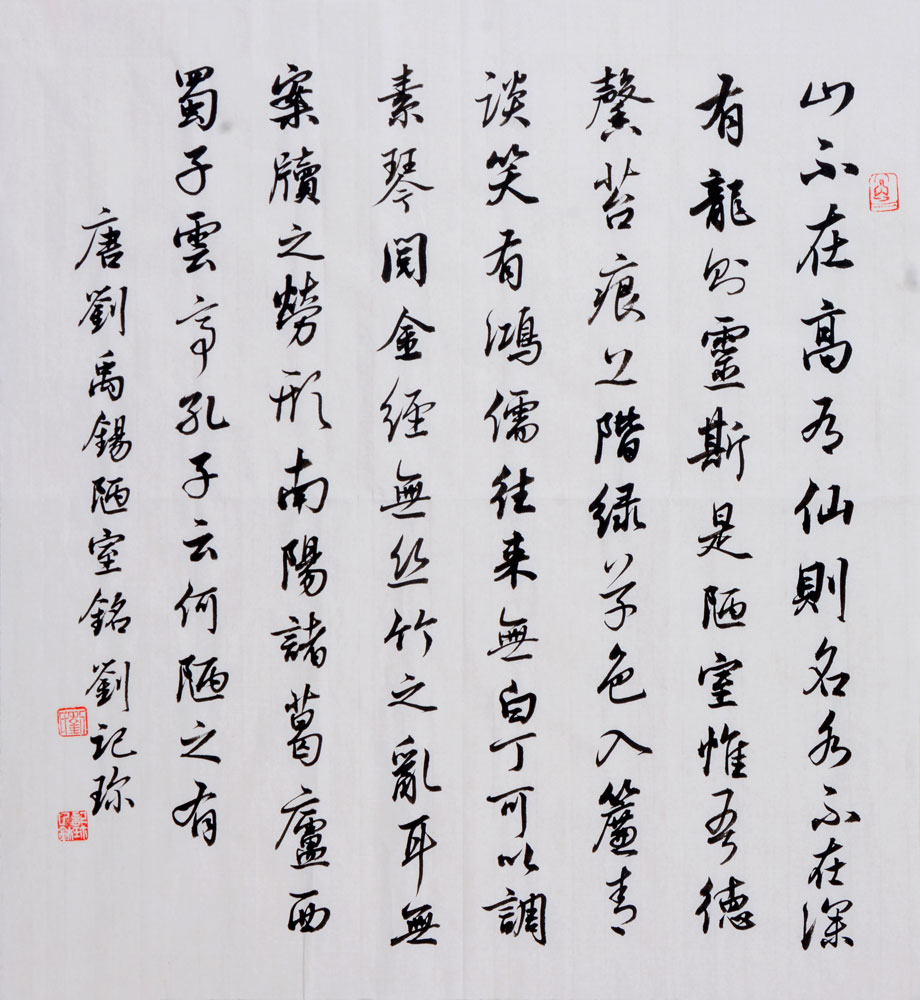 山不在高有仙則名水不在深
有龍則靈斯是陋室惟吾德
馨苔痕上階緑草色入簾青
談笑有鴻儒往来無白丁可以調
素琴閱金經無丝竹之亂耳無
案牘之勞形南陽諸葛廬西
蜀子雲亭孔子云何陋之有
唐劉禹錫陋室銘 劉記珎